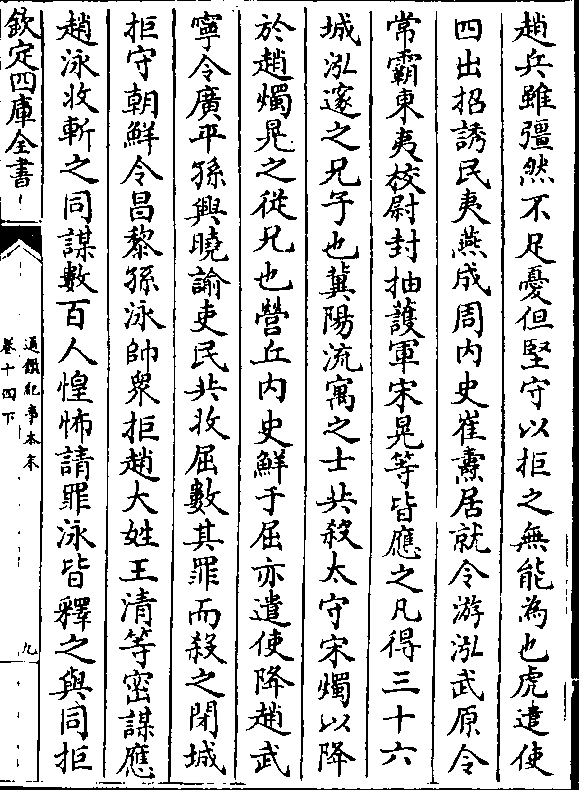 趙兵雖彊然不足憂但堅守以拒之無能為也虎遣使
四出招誘民夷燕成周內史崔燾居就令游泓武原令
常霸東夷校尉封抽護軍宋晃等皆應之凡得三十六
城泓邃之兄子也冀陽流寓之士共殺太守宋燭以降
於趙燭晃之從兄也營丘內史鮮于屈亦遣使降趙武
寧令廣平孫興曉諭吏民共收屈數其罪而殺之閉城
拒守朝鮮令昌黎孫泳帥衆拒趙大姓王清等密謀應
趙泳收斬之同謀數百人惶怖請罪泳皆釋之與同拒
欽定四庫全書
通鑑紀事本末
卷十四下
九